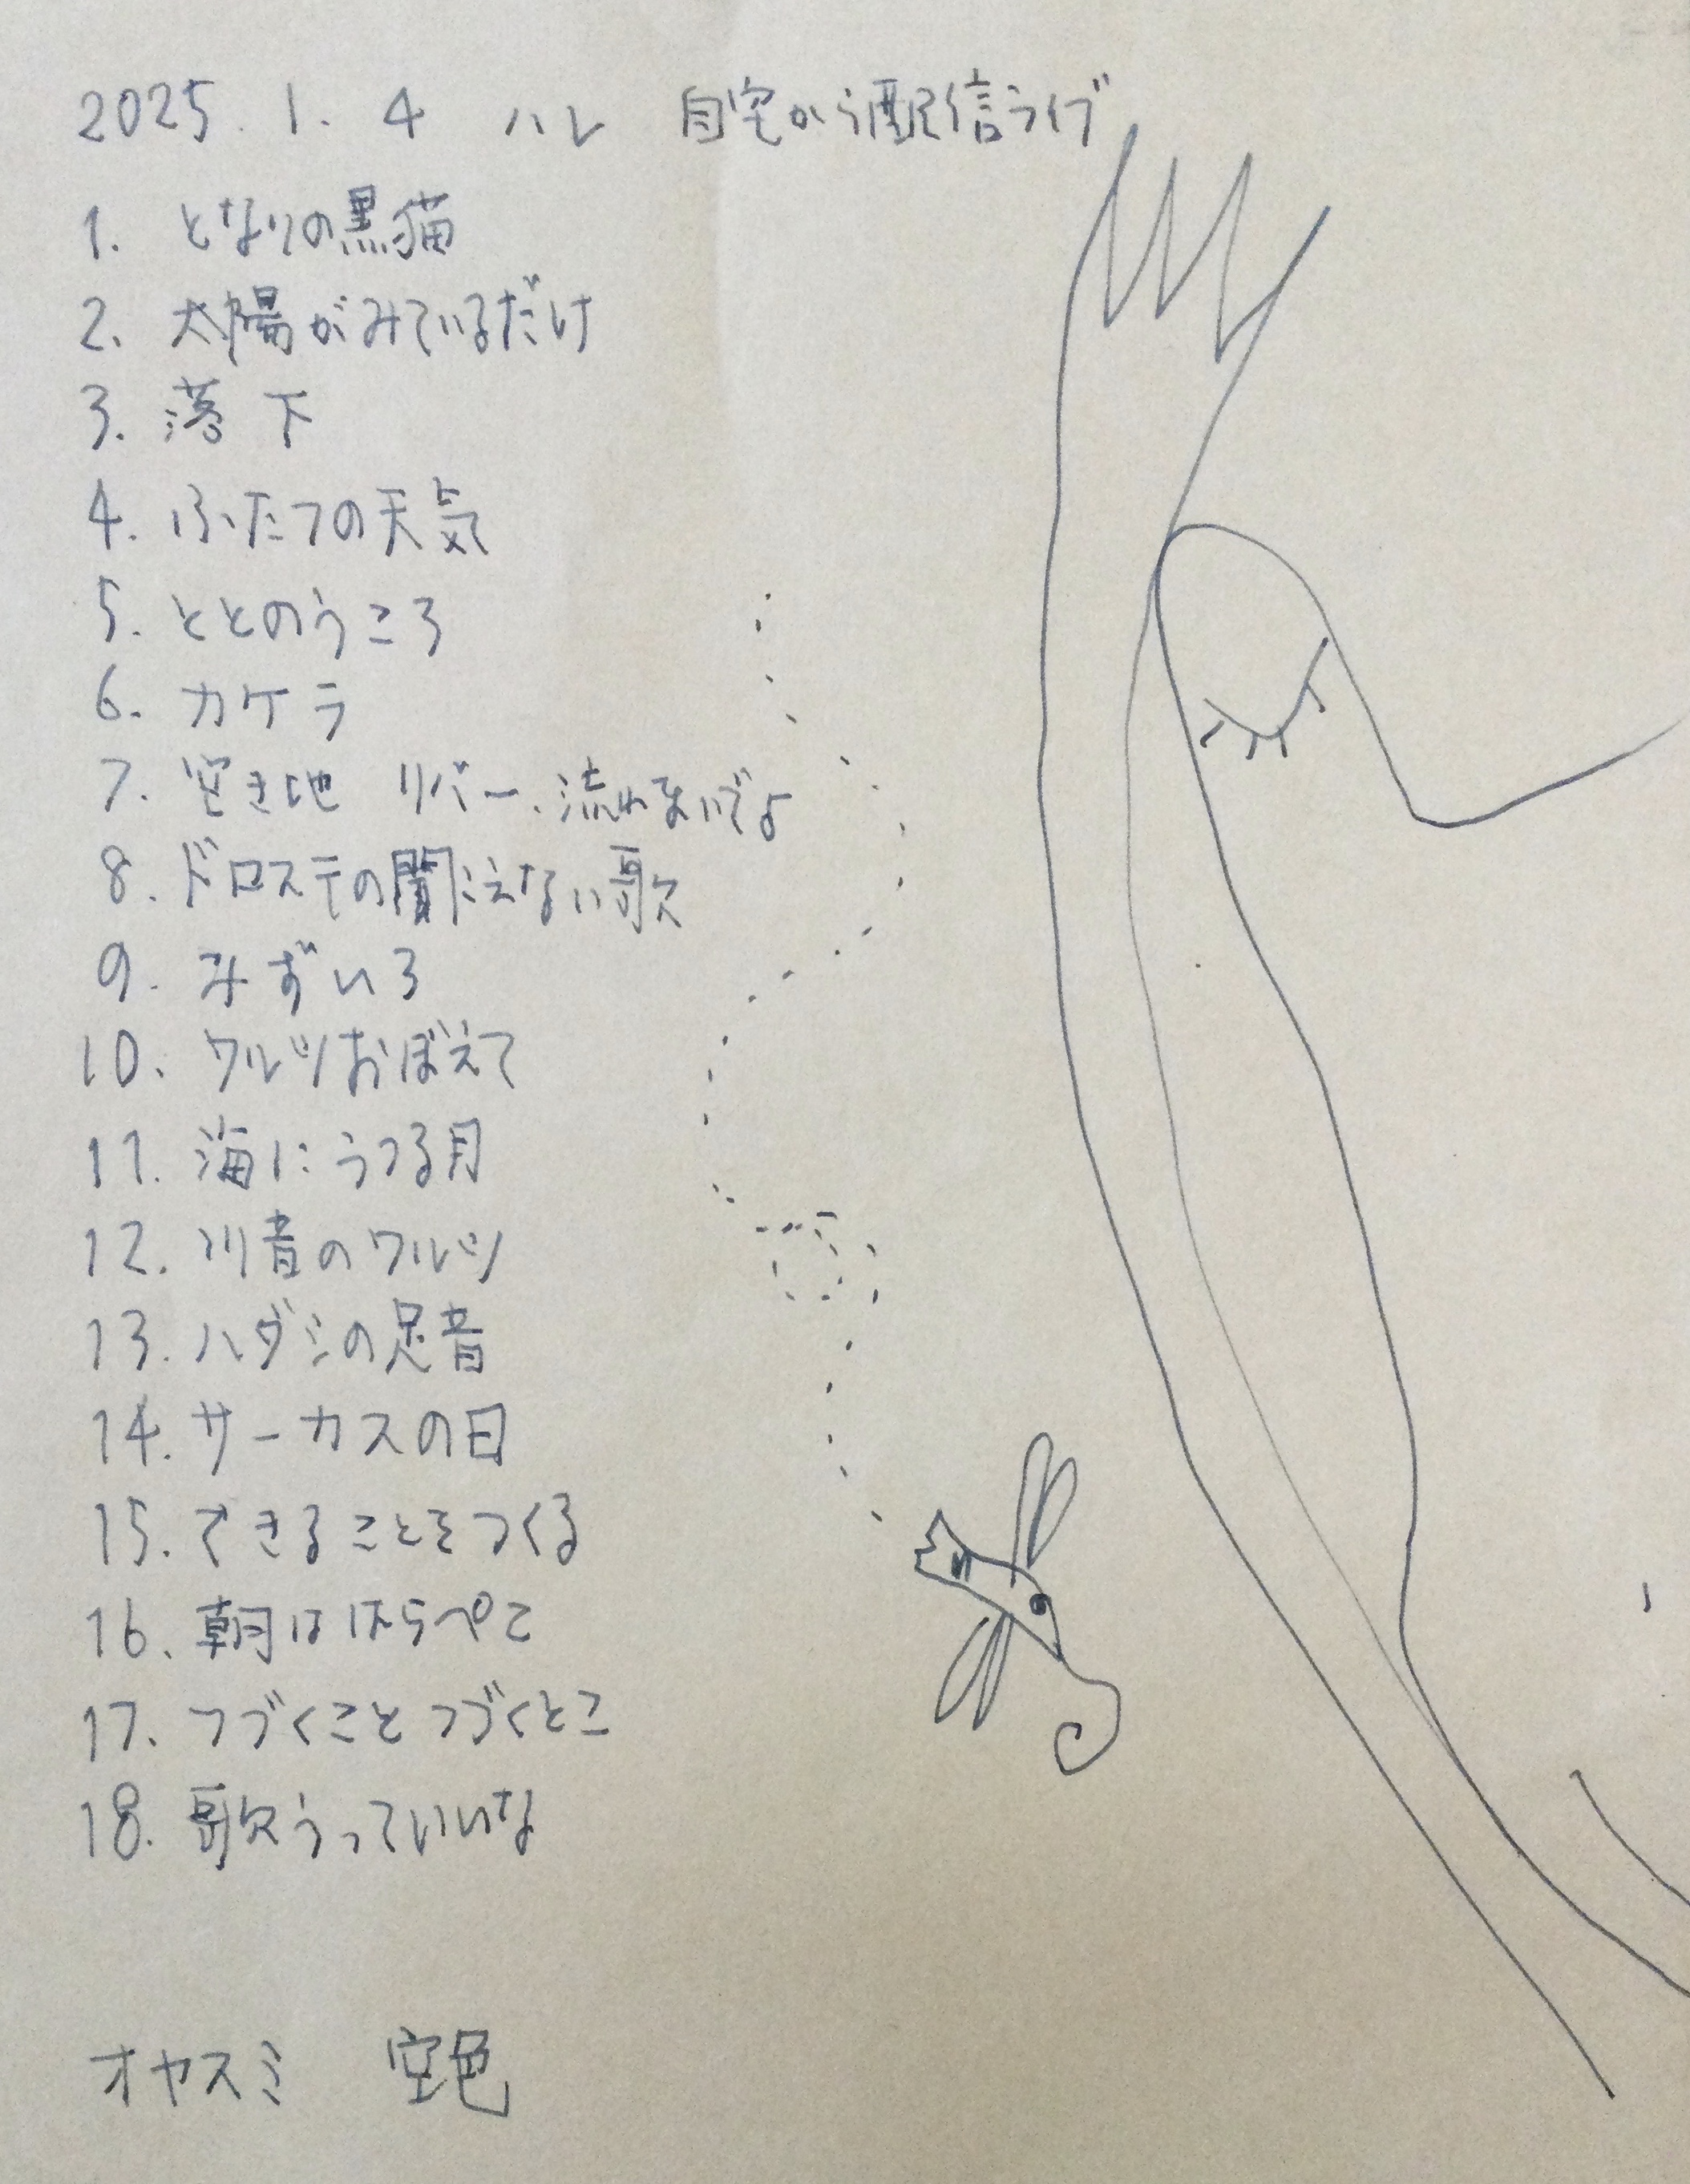 2025.1.4 ハレ 自宅から配信ライブ
1. となりの黒猫
2. 太陽がみているだけ
3. 落下
4. ふたつの天気
5. ととのうころ
6. カケラ
7. 空き地 リバー、流れないでよ
8. ドロステの聞こえない歌
9. みずいろ
10. ワルツおぼえて
11. 海にうつる月
12. 川音のワルツ
13. ハダシの足音
14. サーカスの日
15. できることをつくる
16. 朝ははらぺこ
17. つづくこと つづくとこ
18. 歌うっていいな
オヤスミ 空色